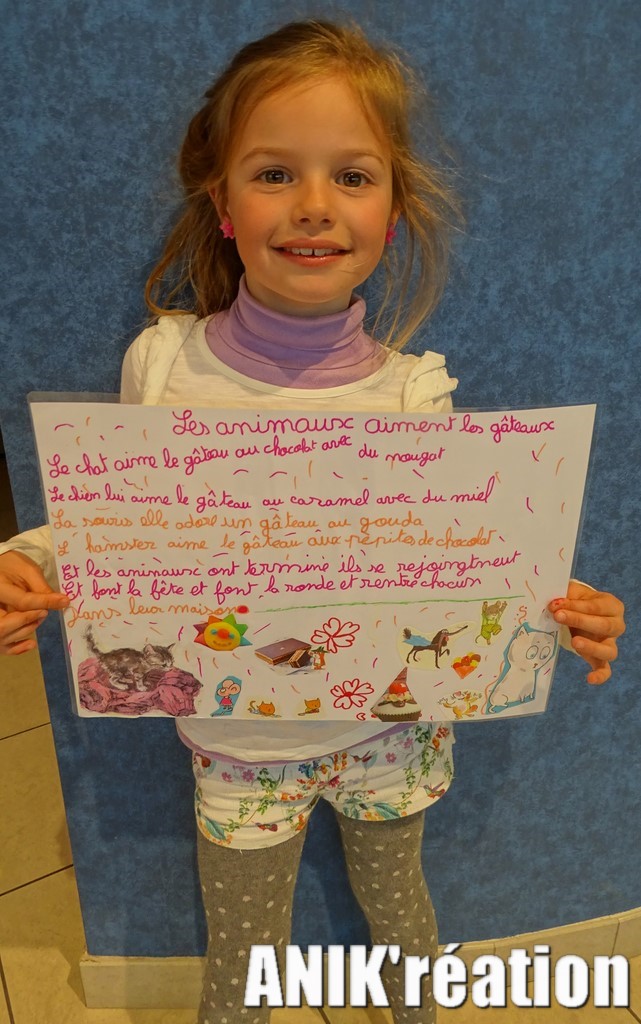 Les animaux aiment les gâteaux
Le chat aime le gâteau au chocolat avec du nougat
Le chien lui aime le gâteau au caramel avec du miel
La souris elle adore un gâteau au gouda
L'hamster aime le gâteau aux pépites de chocolat
Et les animaux ont terminé ils se rejoingtneut
Et font la fête et font la ronde et rentre chacun
dans leur maison
ANIK'réation